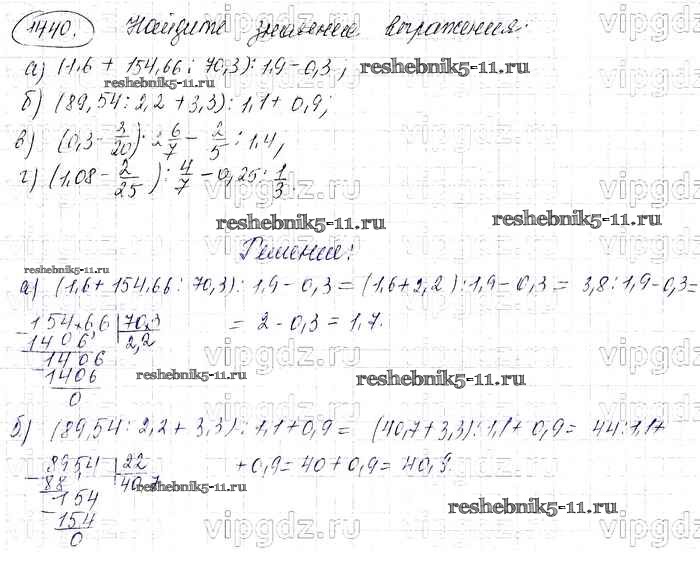 1440. Найдите значение выражения:
а) (1,6 + 154,66 : 70,3) : 1,9 - 0,3; reshebnik5-11.ru
б) (89,54 : 2,2 + 3,3) : 1,1 + 0,9;
в) (0,3 - 3/20) · 2 6/7 - 2/5 : 1,4;
г) (1,08 - 2/25) : 4/7 - 0,25 : 1/3
reshebnik5-11.ru reshebnik5-11.ru
reshebnik5-11.ru Решение:
а) (1,6 + 154,66 : 70,3) : 1,9 - 0,3 = (1,6 + 2,2) : 1,9 - 0,3 = 3,8 : 1,9 - 0,3 =
154,66 | 70,3 = 2 - 0,3 = 1,7.
1406 2,2
1406
1406 reshebnik5-11.ru reshebnik5-11.ru
0
б) (89,54 : 2,2 + 3,3) : 1,1 + 0,9 = (40,7 + 3,3) : 1,1 + 0,9 = 44 : 1,1 +
8954 | 22 + 0,9 = 40 + 0,9 = 40,9.
88 40,7 reshebnik5-11.ru
154
154 reshebnik5-11.ru
0
vipgdz.ru